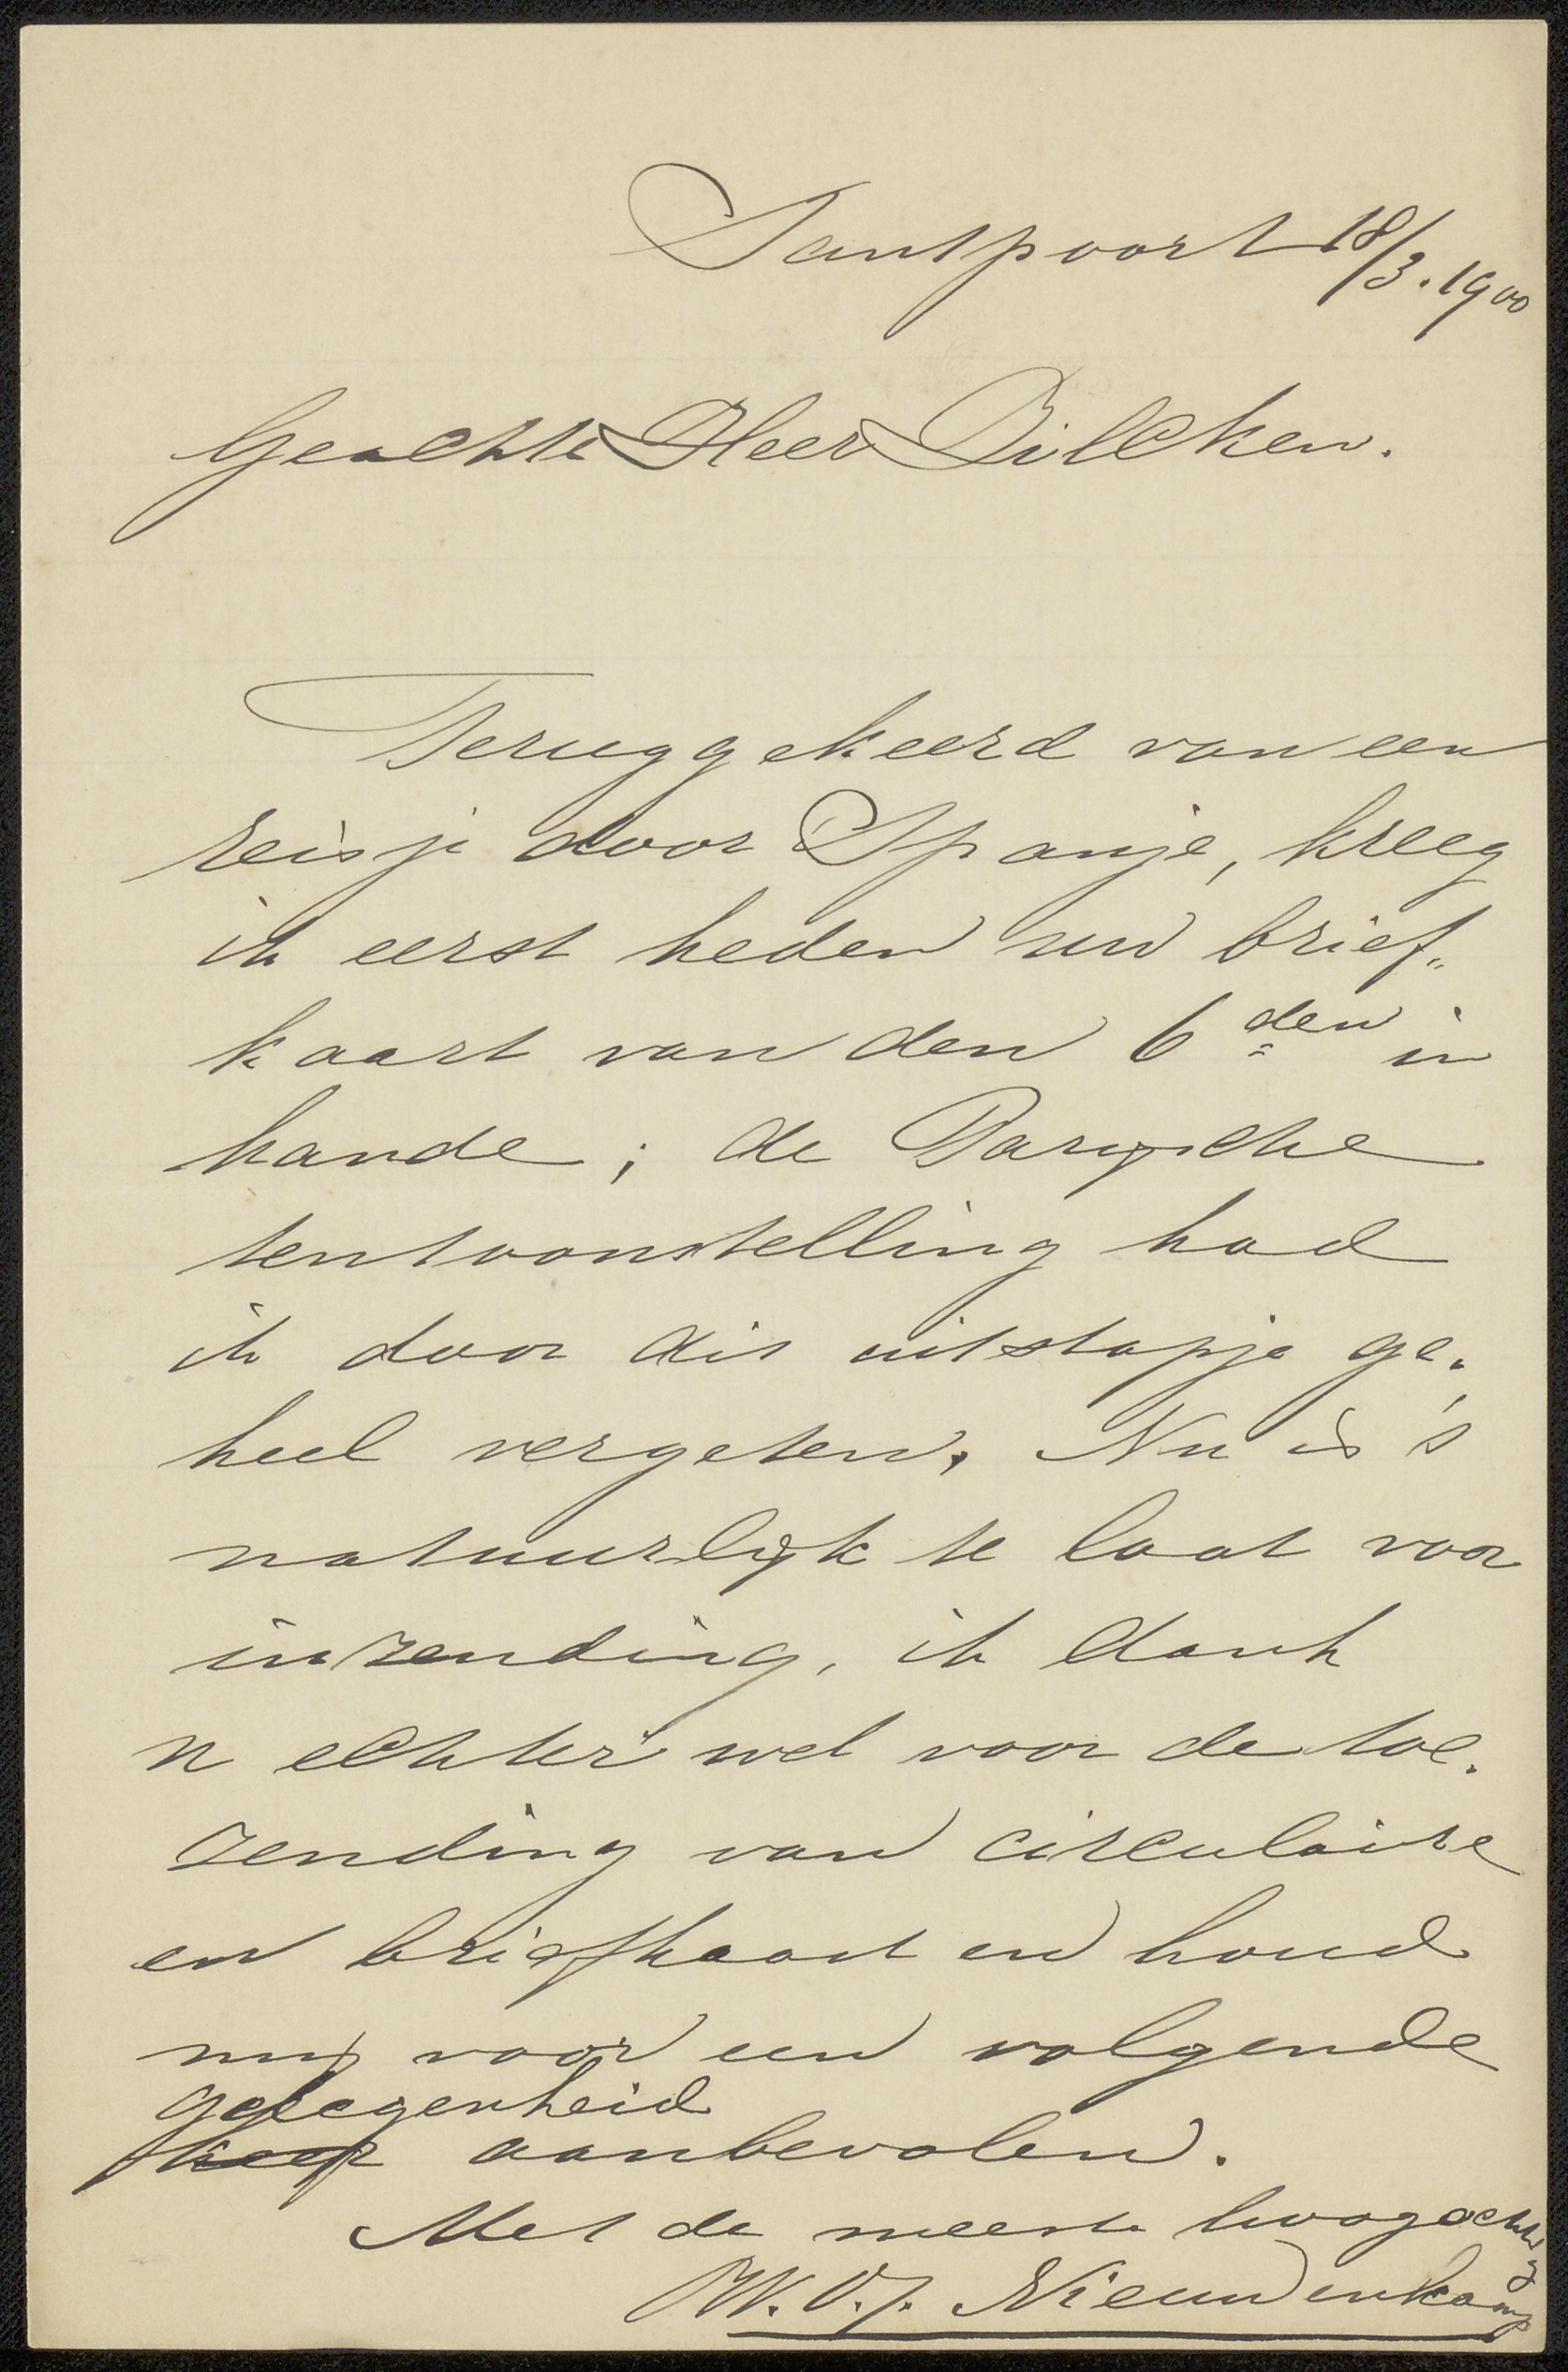 Santpoort 18/3.1900
Geachte Heer Zilcken.
Teruggekeerd van een
reisje door Spanje, kreeg
ik eerst heden uw brief„
kaart van den 6den in
hande; de Parijsche
tentoonstelling had
ik door dit uitstapje ge„
heel vergeten. Nu is 's
natuurlijk te laat voor
inzending, ik dank
u echter wel voor de toe„
zending van circulaire
en briefkaart en houd
mij voor een volgende
gelegenheid
keer aanbevolen.
Met de meeste hoogachting
W.O.J. Nieuwenkamp